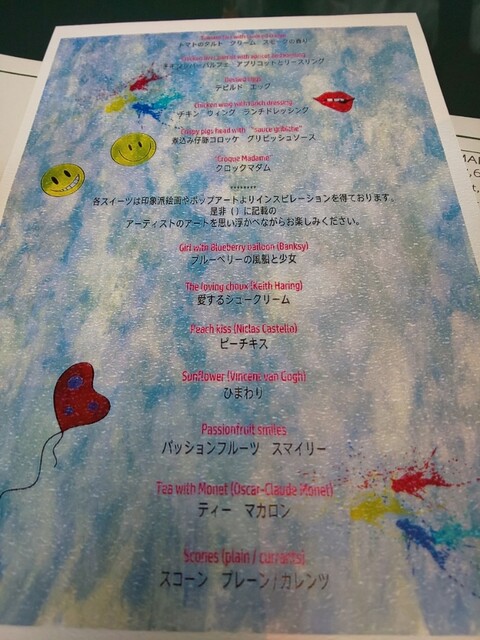 トマトのタルト クリーム スモークの香り
チキンレバーパルフェ アプリコットとリースリング
Deviled eggs
デビルド エッグ
Chicken wing with ranch dressing
チキン ウィング ランチドレッシング
Crispy pigs head with "sauce gribiche"
煮込み仔豚コロッケ グリビッシュソース
"Croque Madame"
クロックマダム
********
各スイーツは印象派絵画やポップアートよりインスピレーションを得ております。
是非 ( ) に記載の
アーティストのアートを思い浮かべながらお楽しみください。
Girl with Blueberry balloon (Banksy)
ブルーベリーの風船と少女
The loving choux (Keith Haring)
愛するシュークリーム
Peach kiss (Niclas Castello)
ピーチキス
Sunflower (Vincent van Gogh)
ひまわり
Passionfruit smiles
パッションフルーツ スマイリー
Tea with Monet (Oscar-Claude Monet)
ティー マカロン
Scones (plain / currants)
スコーン プレーン / カレンツ